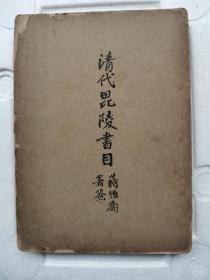 清代毘陵書目
蔣維喬
署簽